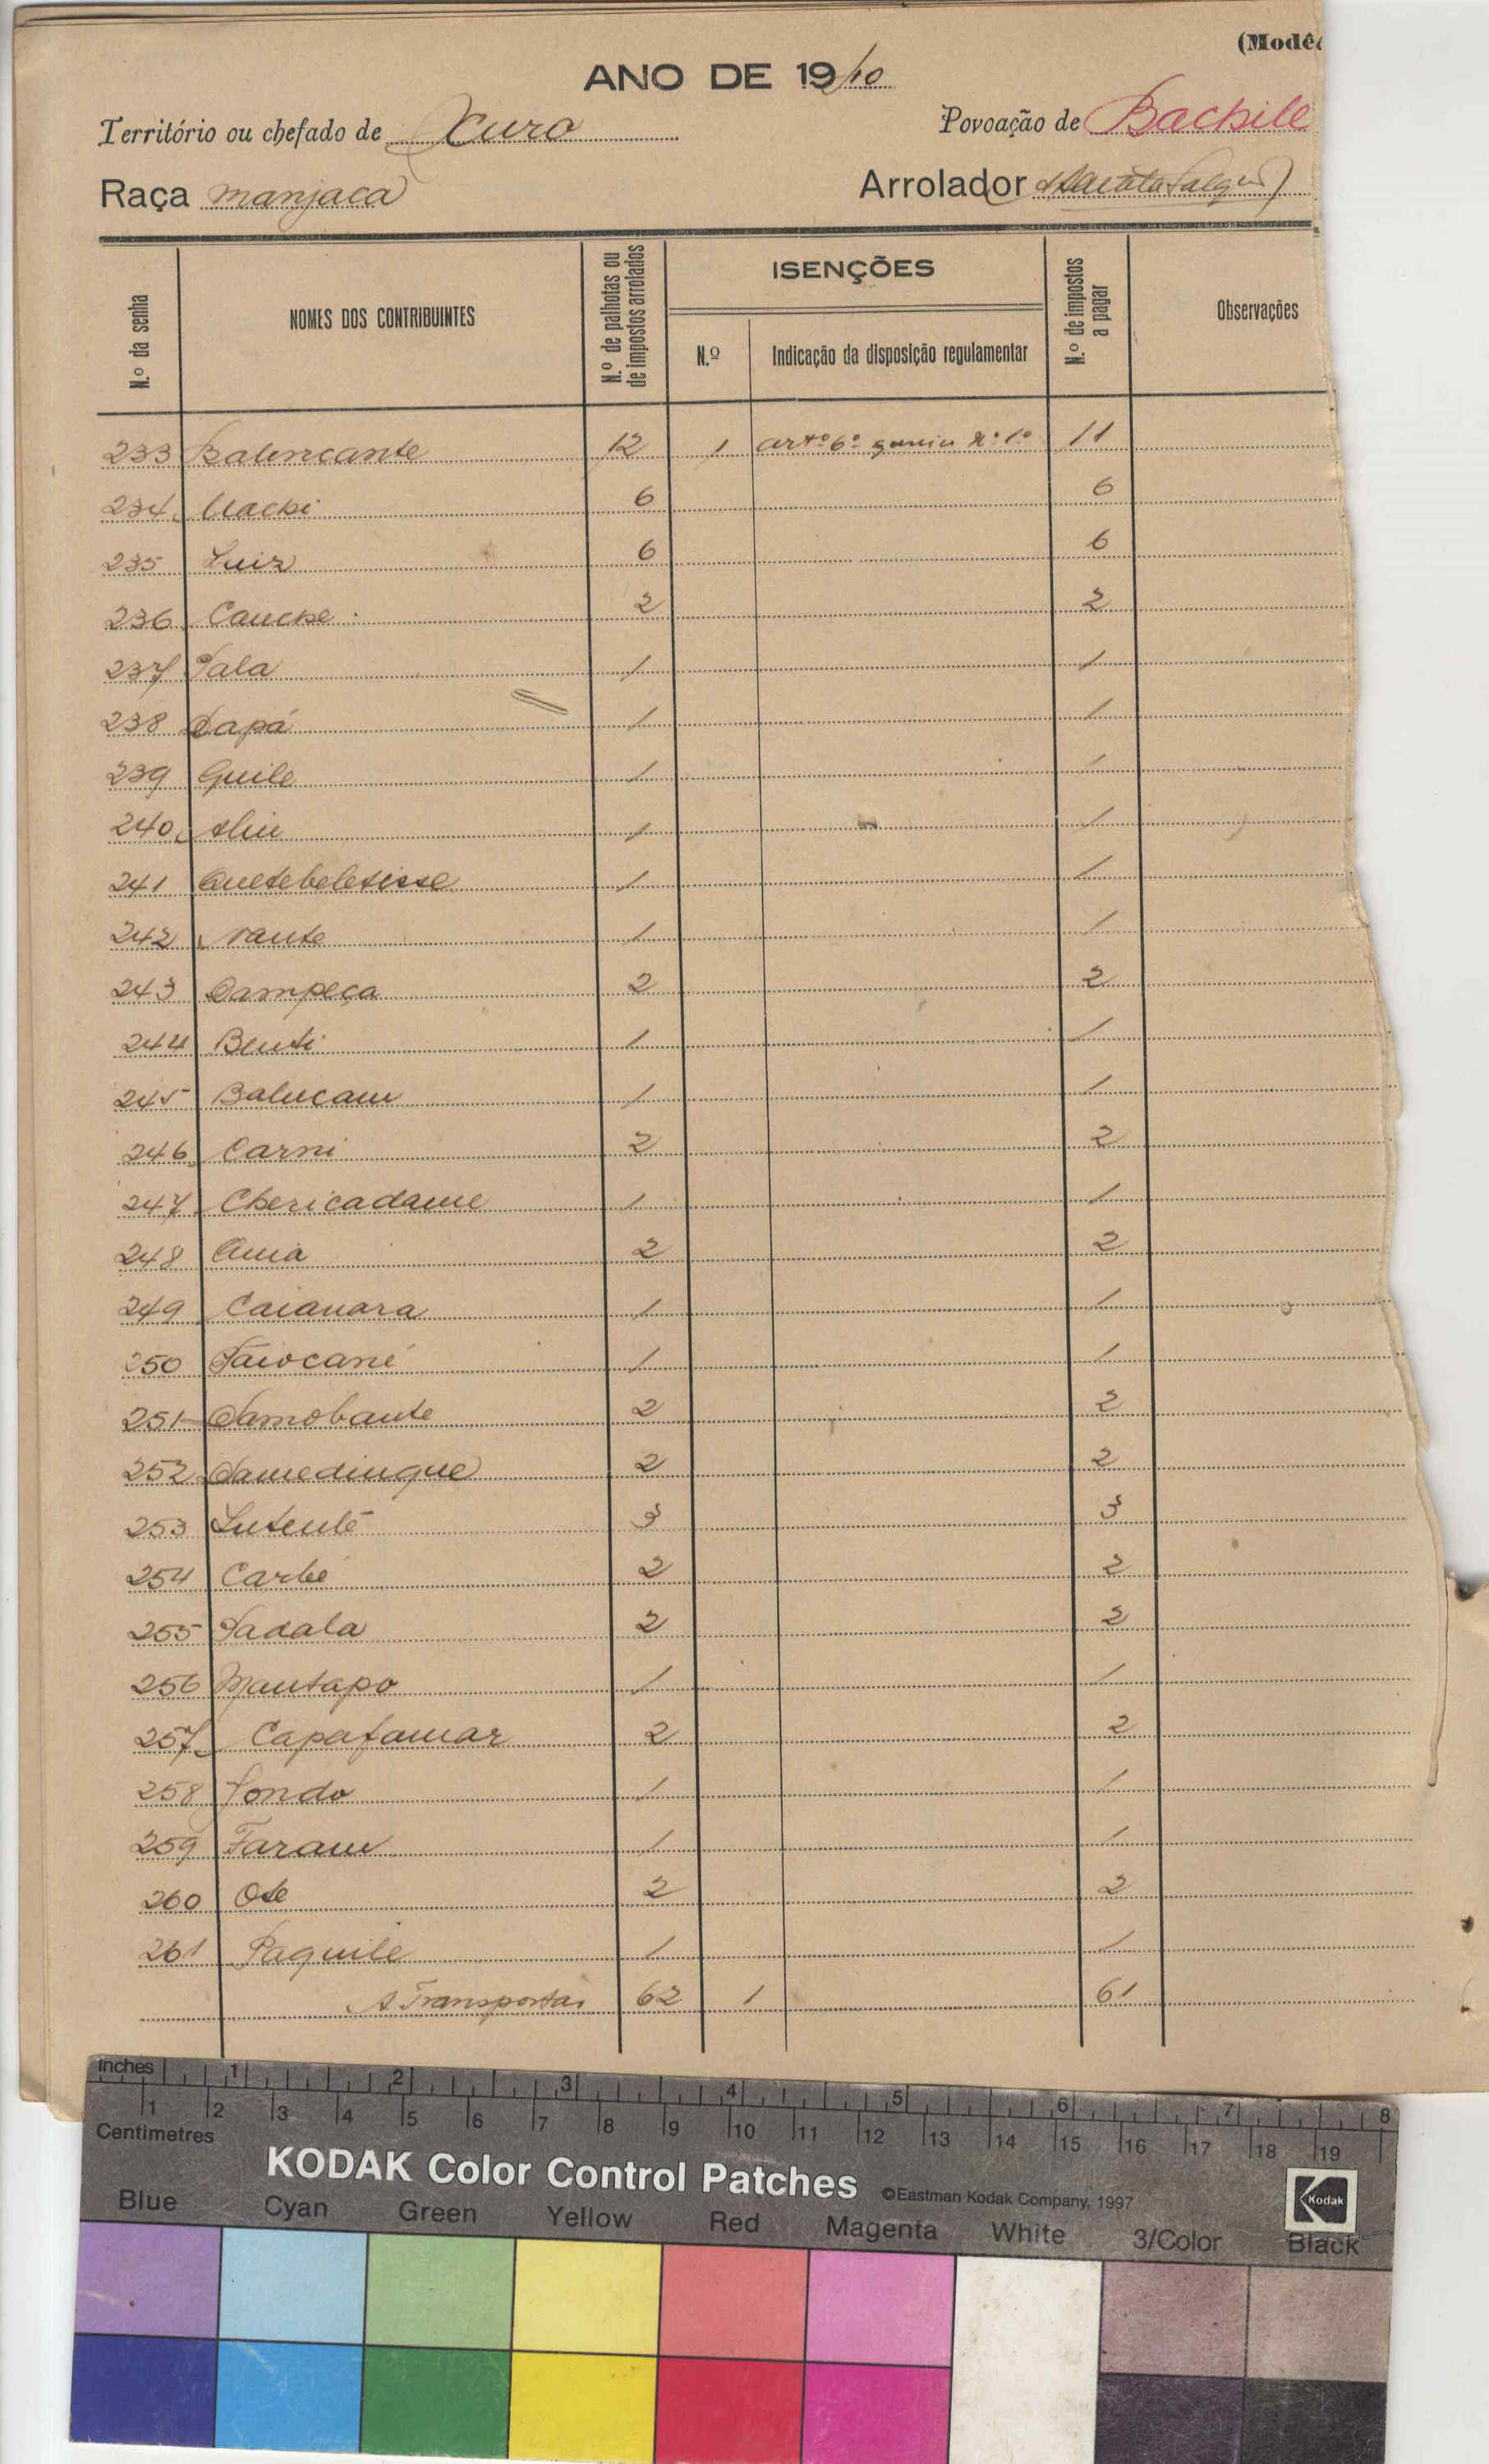 (Modê
ANO DE 1940
Território ou chefado de Xuro Povoação de Bachile
Raça manjaca Arrolador
N.º da senha
NOMES DOS CONTRIBUINTES
N.º de palhotas ou de impostos arrolados
ISENÇÕES
N.º
Indicação da disposição regulamentar
N.º de impostos a pagar
Observações
233 Balencante 12 1 artº 6º nº 1º 11
234 Uachi 6 6
235 Luiz 6 6
236 Cauche 2 2
237 Sala 1 1
238 Dapá 1 1
239 Guile 1 1
240 Aliu 1 1
241 Quetebeletisse 1 1
242 Naute 1 1
243 Dampeça 2 2
244 Benti 1 1
245 Balucam 1 1
246 Carni 2 2
247 Chericadame 1 1
248 2 2
249 Caianara 1 1
250 Saiocané 1 1
251 Samobante 2 2
252 Samedingue 2 2
253 Lutenté 3 3
254 Carbé 2 2
255 Sadala 2 2
256 Mantapo 1 1
257 Capafamar 2 2
258 Jondo 1 1
259 Faram 1 1
260 Ote 2 2
261 Paquile 1 1
A Transportar 62 1 61
inches 1 2 3 4 5 6 7 8
1 2 3 4 5 6 7 8 9 10 11 12 13 14 15 16 17 18 19
Centimetres
KODAK Color Control Patches ©Eastman Kodak Company, 1997 Kodak
Blue Cyan Green Yellow Red Magenta White 3/Color Black